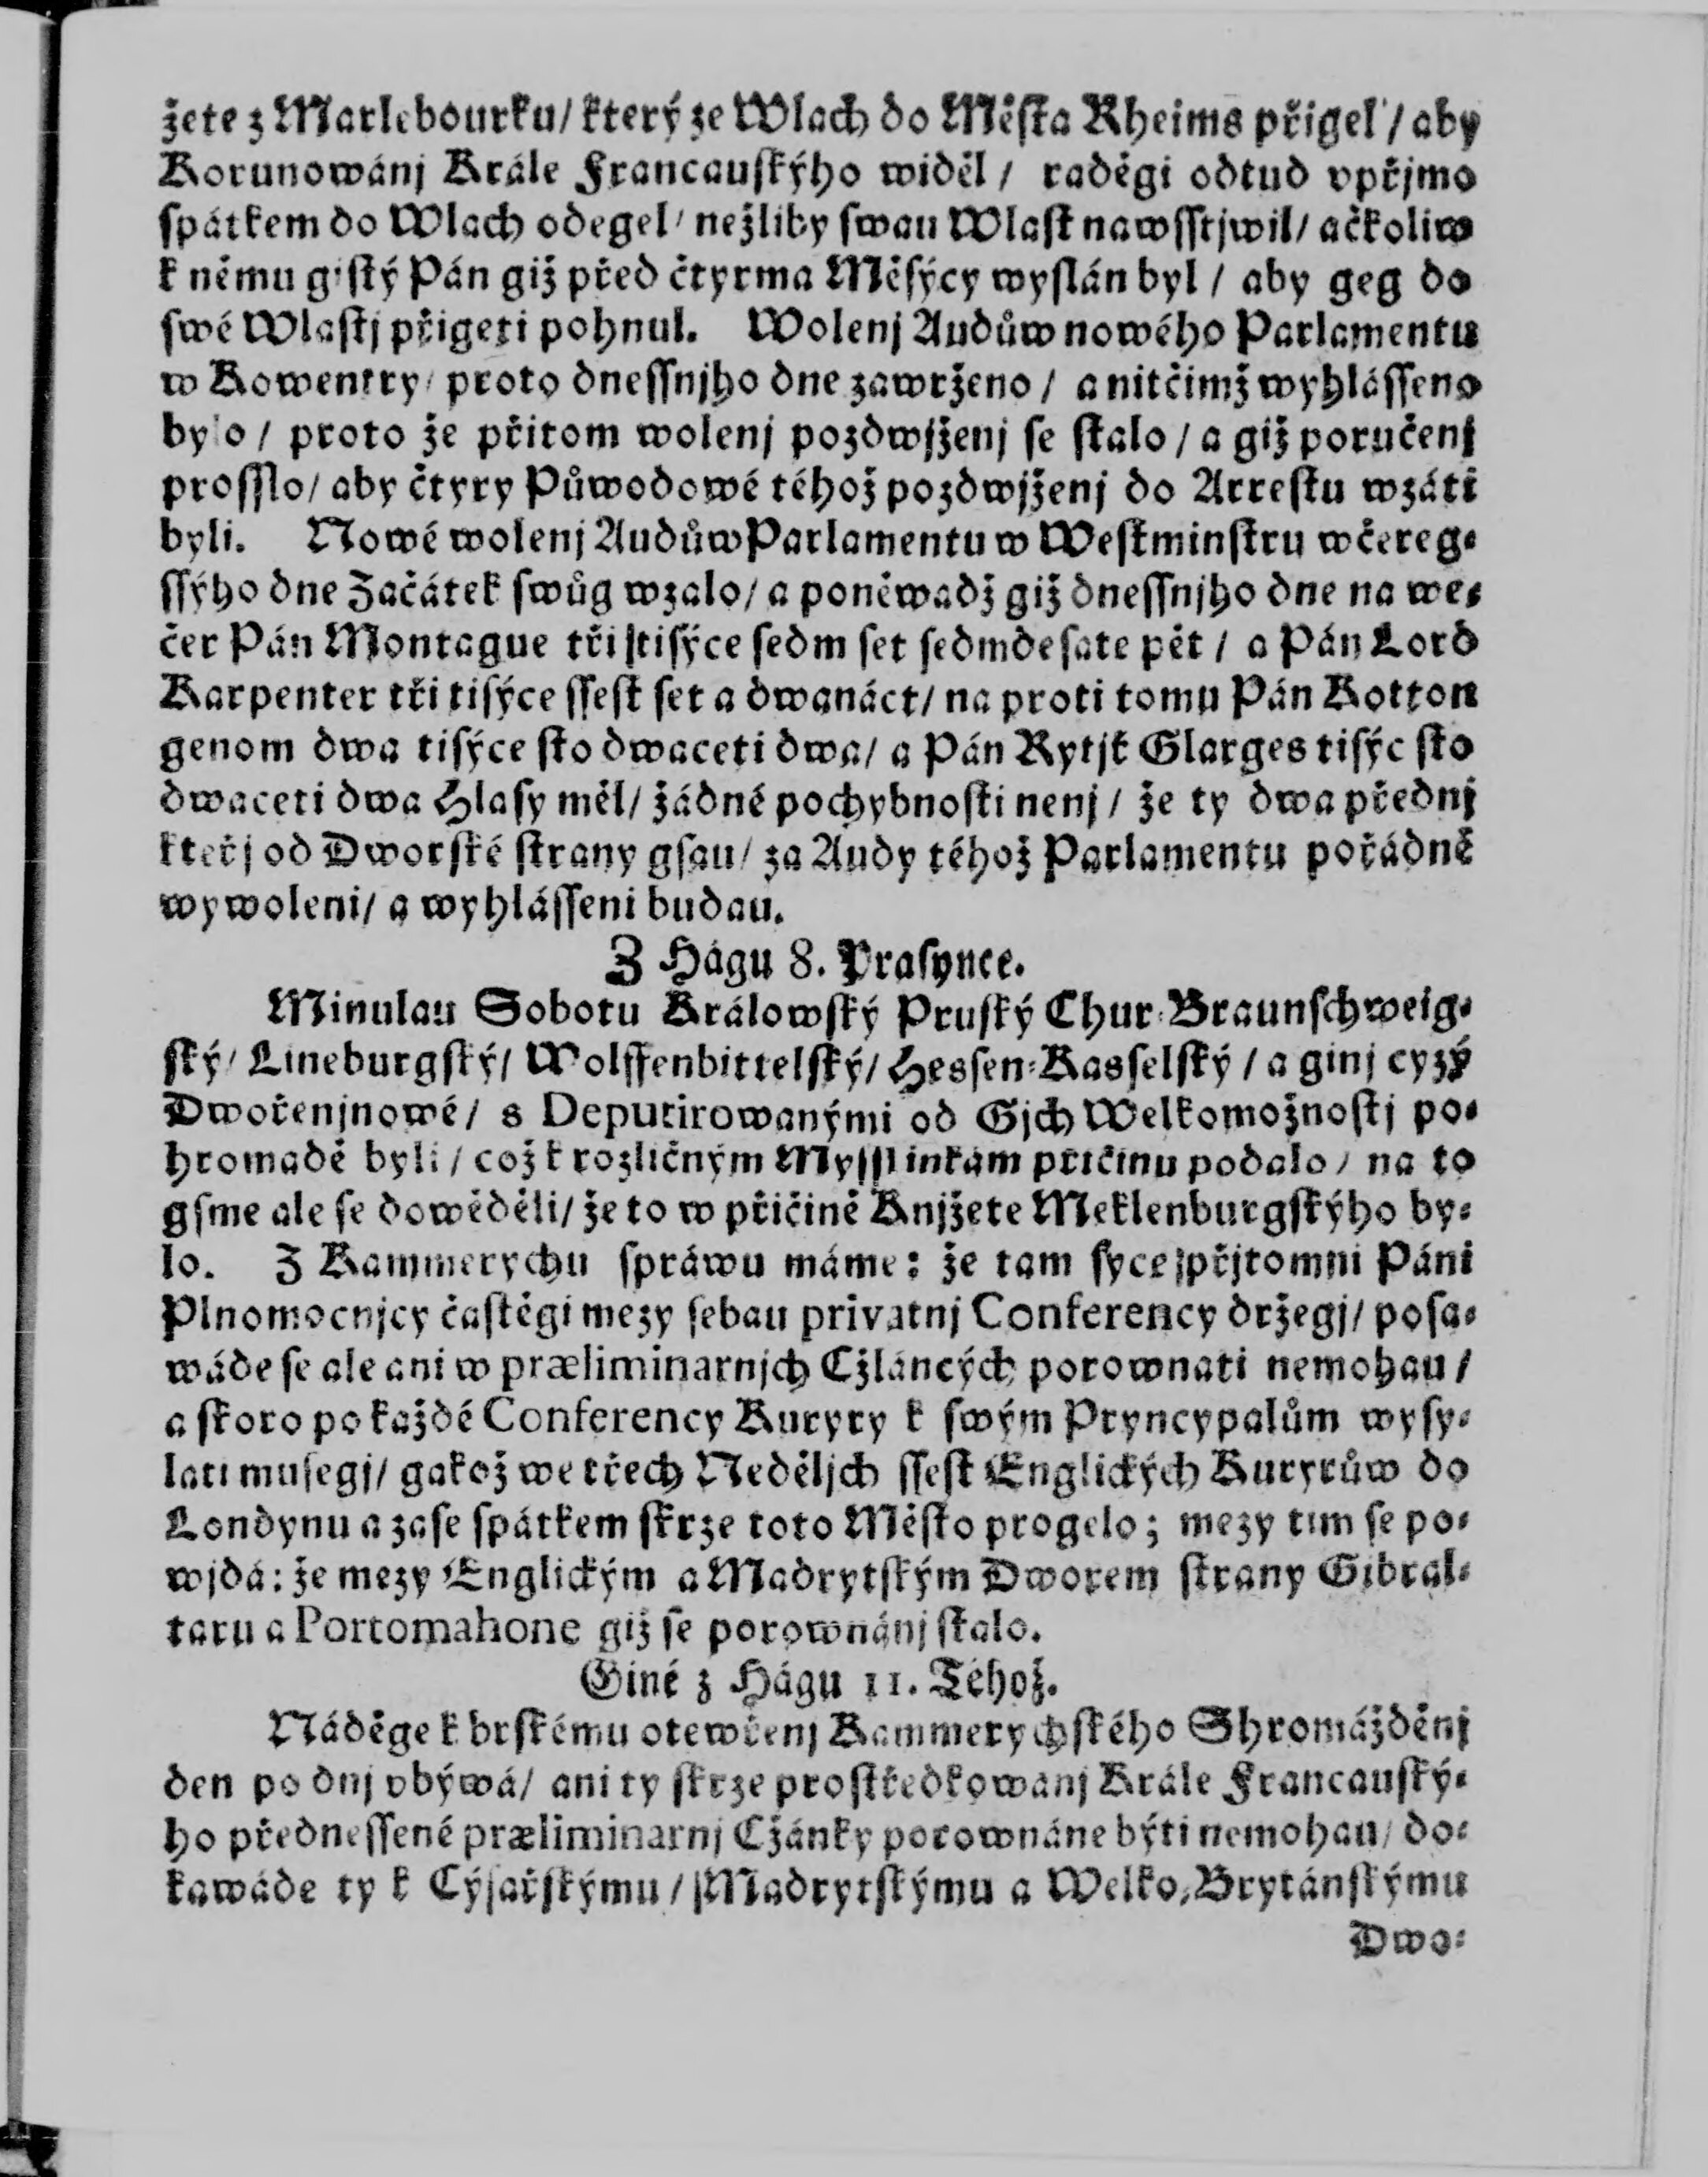 žete z Marlebourku/ který ze Wlach do Města Rheims přigel/ aby
Korunowánj Krále Francauſkýho widěl/ raděgi odtud vpřjmo
ſpátkem do Wlach odegel/ nežliby ſwau Wlaſt nawſſtjwil/ ačkoliw
k němu giſtý Pán giž před čtyrma Měſýcy wyſlán byl/ aby geg do
ſwé Wlaſtj přigeti pohnul. Wolenj Audůw nowého Parlamentu
w Kowentry/ proto dneſſnjho dne zawrženo/ a nitčimž wyhláſſeno
bylo/ proto že přitom wolenj pozdwjženj ſe ſtalo/ a giž poručenj
proſſlo/ aby čtyry Půwodowé téhož pozdwjženj do Arreſtu wzáti
byli. Nowé wolenj Audůw Parlamentu w Weſtminſtru wčereg-
ſſýho dne Začátek ſwůg wzalo/ a poněwadž giž dneſſnjho dne na we-
čer Pán Montague tři tiſýce ſedm ſet ſedmdeſate pět/ a Pán Lord
Karpenter tři tiſýce ſſeſt ſet a dwanáct/ na proti tomu Pán Kotton
genom dwa tiſýce ſto dwaceti dwa/ a Pán Rytjř Glarges tiſýc ſto
dwaceti dwa Hlaſy měl/ žádné pochybnoſti nenj/ že ty dwa přednj
kteřj od Dworſké ſtrany gſau/ za Audy téhož Parlamentu pořádně
wywoleni/ a wyhláſſeni budau.
Z Hágu 8. Praſynce.
Minulau Sobotu Králowſký Pruſký Chur-Braunſchweig-
ſký/ Lineburgſký/ Wolffenbittelſký/ Heſſen-Kaſſelſký/ a ginj cyzý
Dwořenjnowé/ s Deputirowanými od Gjch Welkomožnoſtj po-
hromadě byli/ což k rozličným Myſſlinkám přičinu podalo/ na to
gſme ale ſe dowěděli/ že to w přičině Knjžete Meklenburgſkýho by-
lo. Z Kammerychu ſpráwu máme: že tam ſyce přjtomni Páni
Plnomocnjcy čaſtěgi mezy ſebau privatnj Conferency držegj/ poſa-
wáde ſe ale ani w præliminarnjch Cžláncých porownati nemohau/
a ſkoro po každé Conferency Kuryry k ſwým Pryncypalům wyſy-
lati muſegj/ gakož we třech Neděljch ſſeſt Englických Kuryrůw do
Londynu a zaſe ſpátkem ſkrze toto Měſto progelo; mezy tim ſe po-
wjdá: že mezy Englickým a Madrytſkým Dworem ſtrany Gibral-
taru a Portomahone giž ſe porownánj ſtalo.
Giné z Hágu 11. Téhož.
Náděge k brſkému otewřenj Kammerychſkého Shromážděnj
den po dnj vbýwá/ ani ty ſkrze proſtředkowanj Krále Francauſký-
ho předneſſené præliminarnj Cžánky porownáne býti nemohau/ do-
kawáde ty k Cýſařſkýmu/ Madrytſkýmu a Welko-Brytánſkýmu
Dwo-